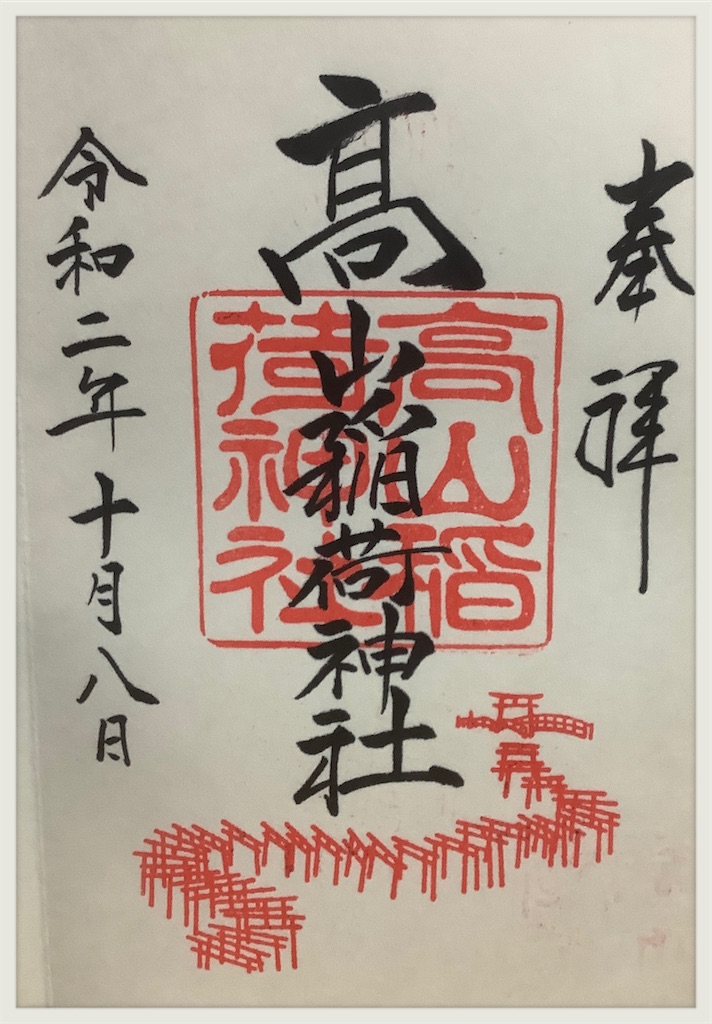 奉拝
高山稲荷神社
高山稲
荷神社
令和二年十月八日